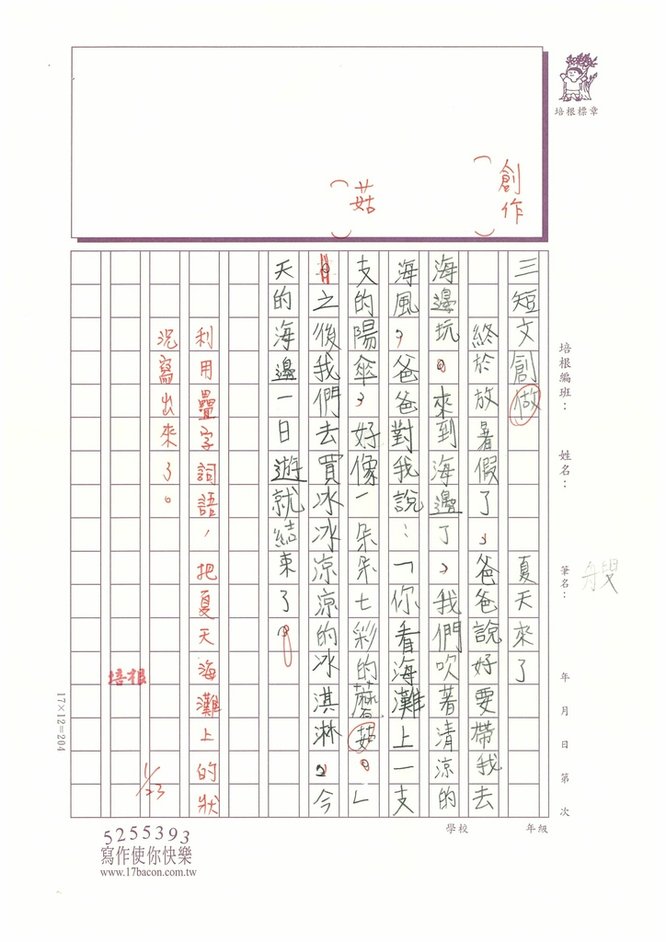 培根標章
創作
菇
培根編班：
姓名：
筆名：
年 月 日 第 次
三短文創做 夏天來了
終於放暑假了，爸爸說好要帶我去
海邊玩。來到海邊了，我們吹著清涼的
海風，爸爸對我說：「你看海灘上一支
支的陽傘，好像一朵朵七彩的蘑菇。」
之後我們去買冰冰涼涼的冰淇淋，今
天的海邊一日遊就結束了。
利用疊字詞語，把夏天海灘上的狀
況寫出來了。
培根
1/23
17×12=204
學校 年級
5255393
寫作使你快樂
www.17bacon.com.tw